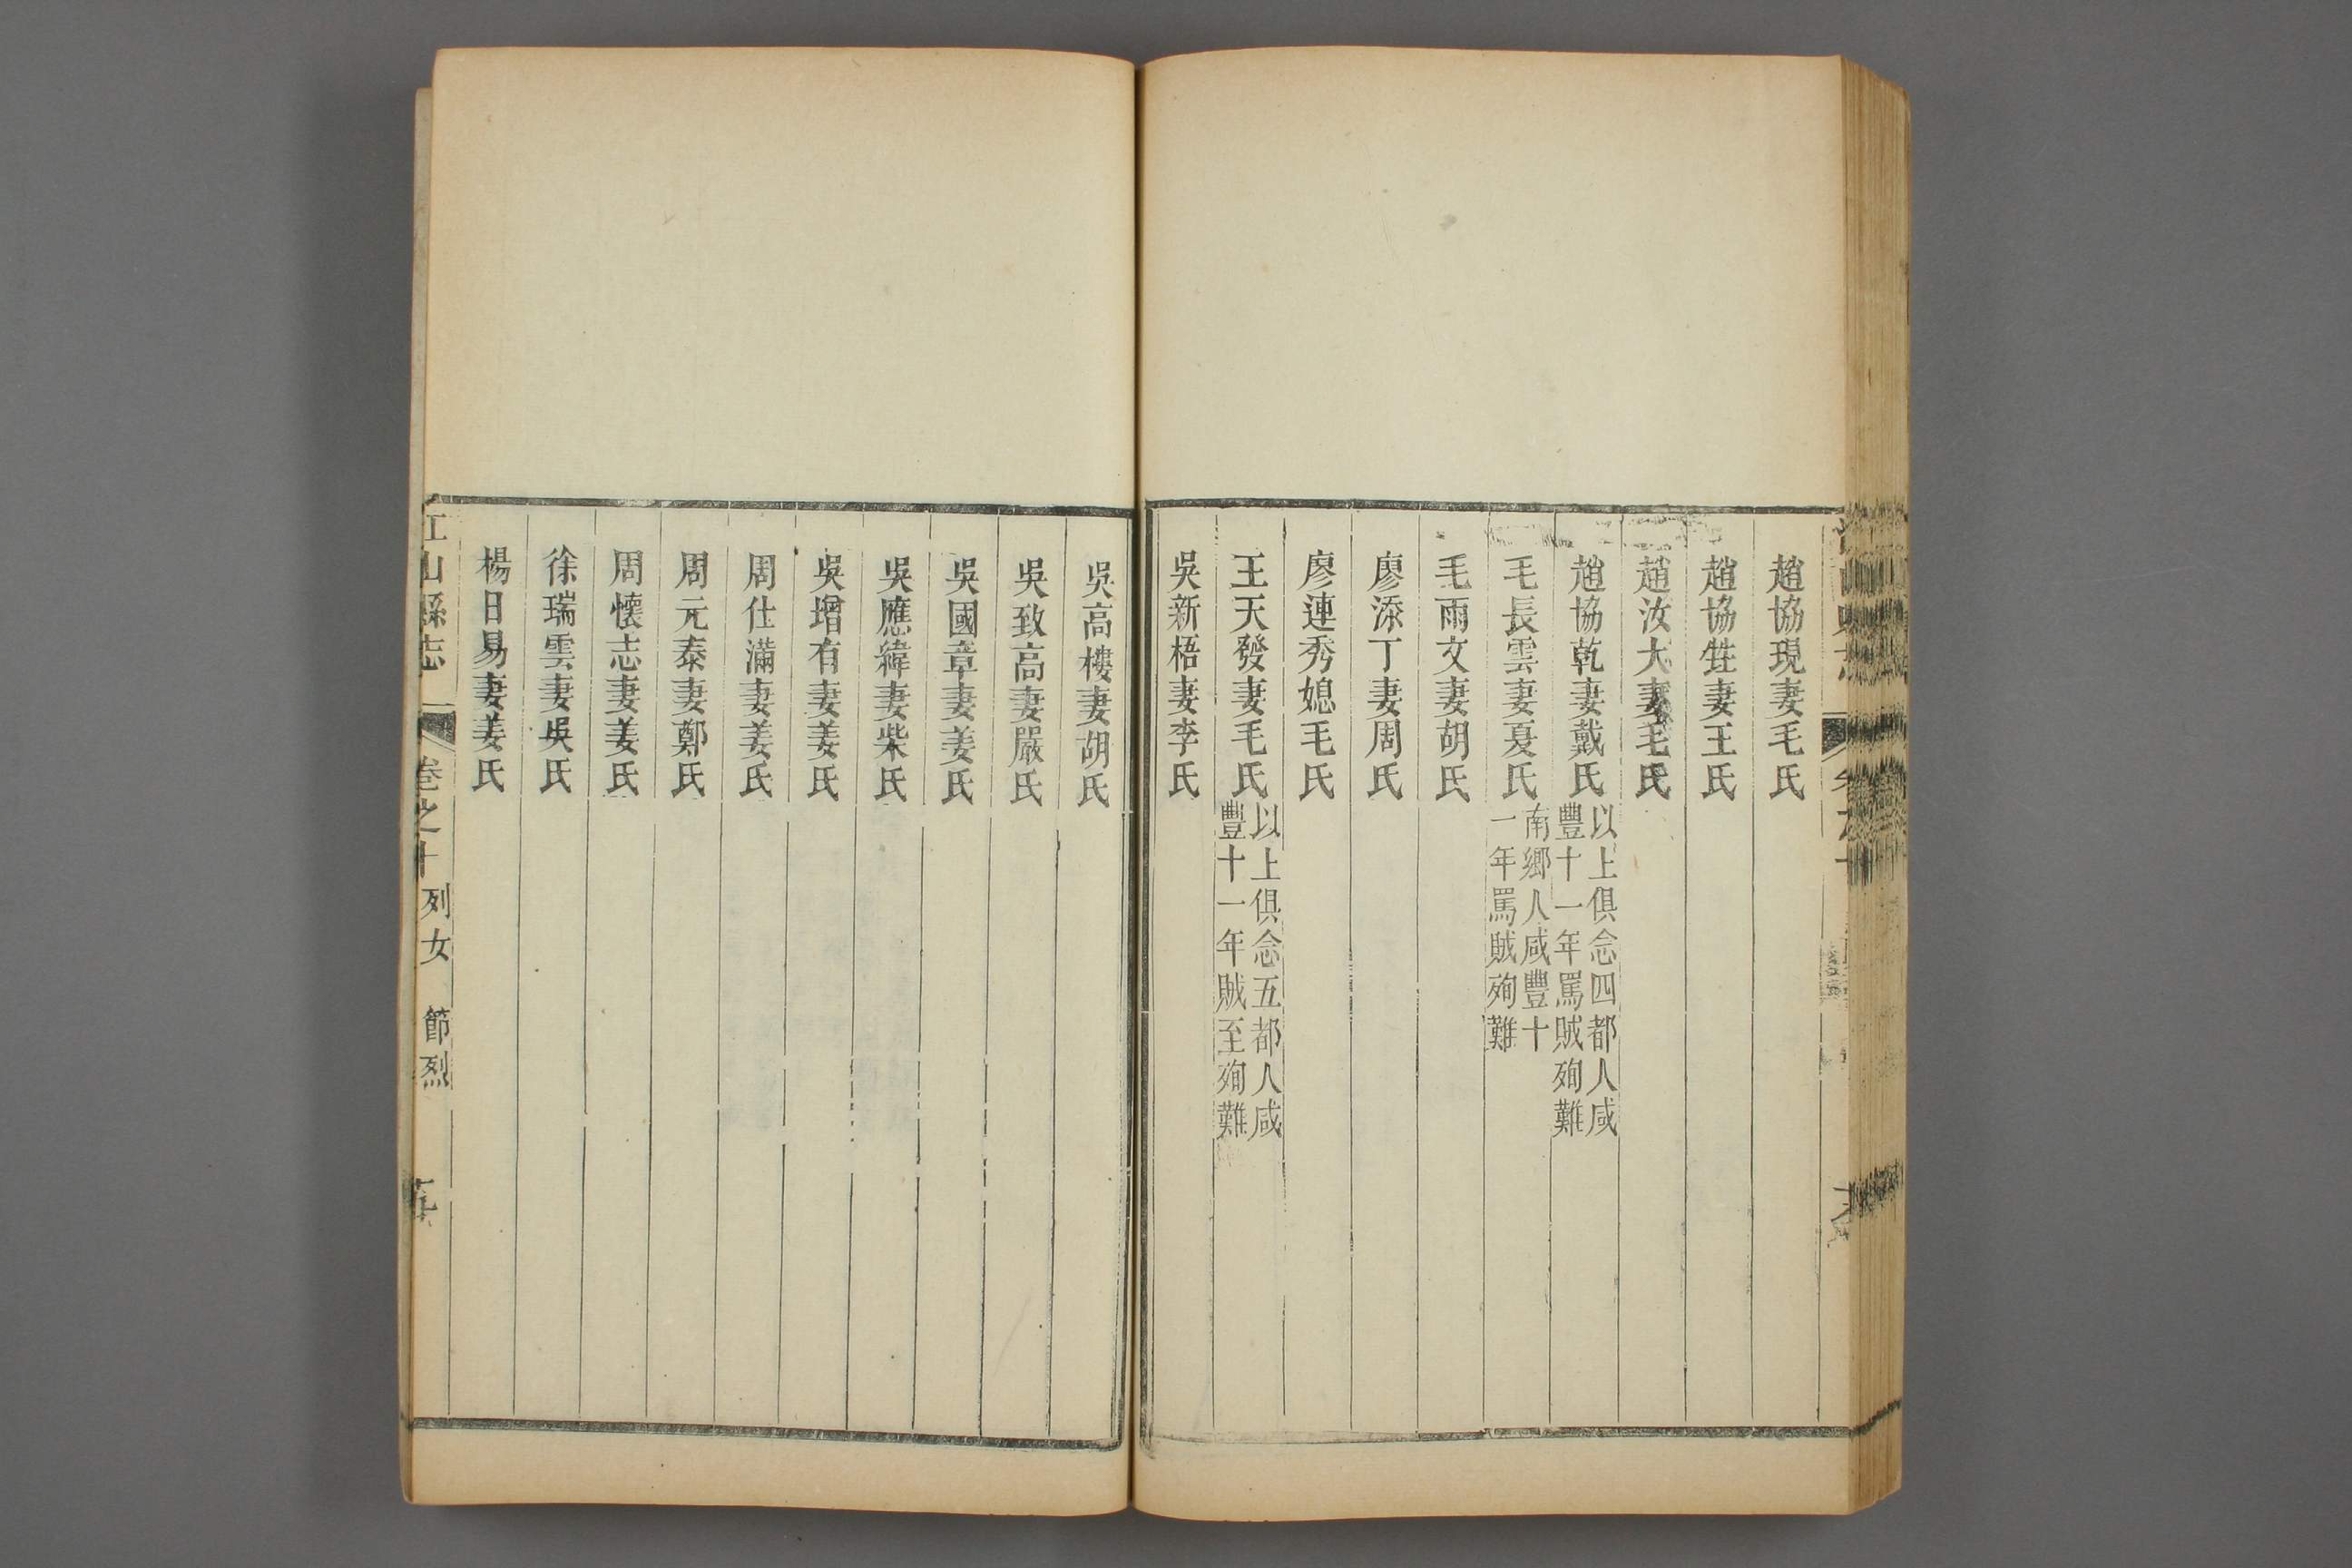 趙協現妻毛氏
趙協甡妻王氏
趙汝大妻毛氏
趙協乾妻戴氏以上俱念四都人咸
豐十一年罵賊殉難
毛長雲妻夏氏南鄉人咸豐十
一年罵賊殉難
毛雨文妻胡氏
廖添丁妻周氏
廖連秀媳毛氏
王天發妻毛氏以上俱念五都人咸
豐十一年賊至殉難
吳新梧妻李氏
吳高樓妻胡氏
吳致高妻嚴氏
吳國章妻姜氏
吳應緯妻柴氏
吳增有妻姜氏
周仕滿妻姜氏
周元泰妻鄭氏
周懷志妻姜氏
徐瑞雲妻吳氏
楊日易妻姜氏
江山縣志 卷之十 列女 節烈